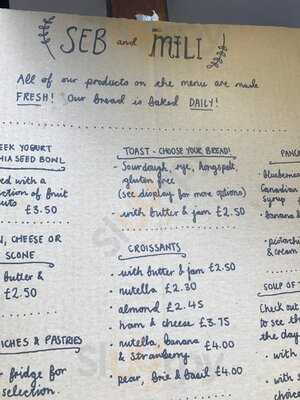 SEB and MILI
All of our products on the menu are made
FRESH! Our bread is baked DAILY!
EEK YOGURT
HIA SEED BOWL
ed with a
ction of fruit
uts £3.50
N, CHEESE OR
SCONE
butter &
£2.50
ICHES & PASTRIES
r fridge for
selection.
TOAST - CHOOSE YOUR BREAD!
• Sourdough, rye,
gluten free
(see display for more options)
• with butter & jam £2.50
CROISSANTS
• with butter & jam £2.50
• nutella £2.30
• almond £2.45
• ham & cheese £3.75
• nutella, banana
& strawberry £4.00
• pear, brie & basil £4.00
PANC
• blueberries
Canadian
syrup
• banana
• pistachio
& cream
SOUP OF
Check out
to see th
the day
• with
• with s
choice